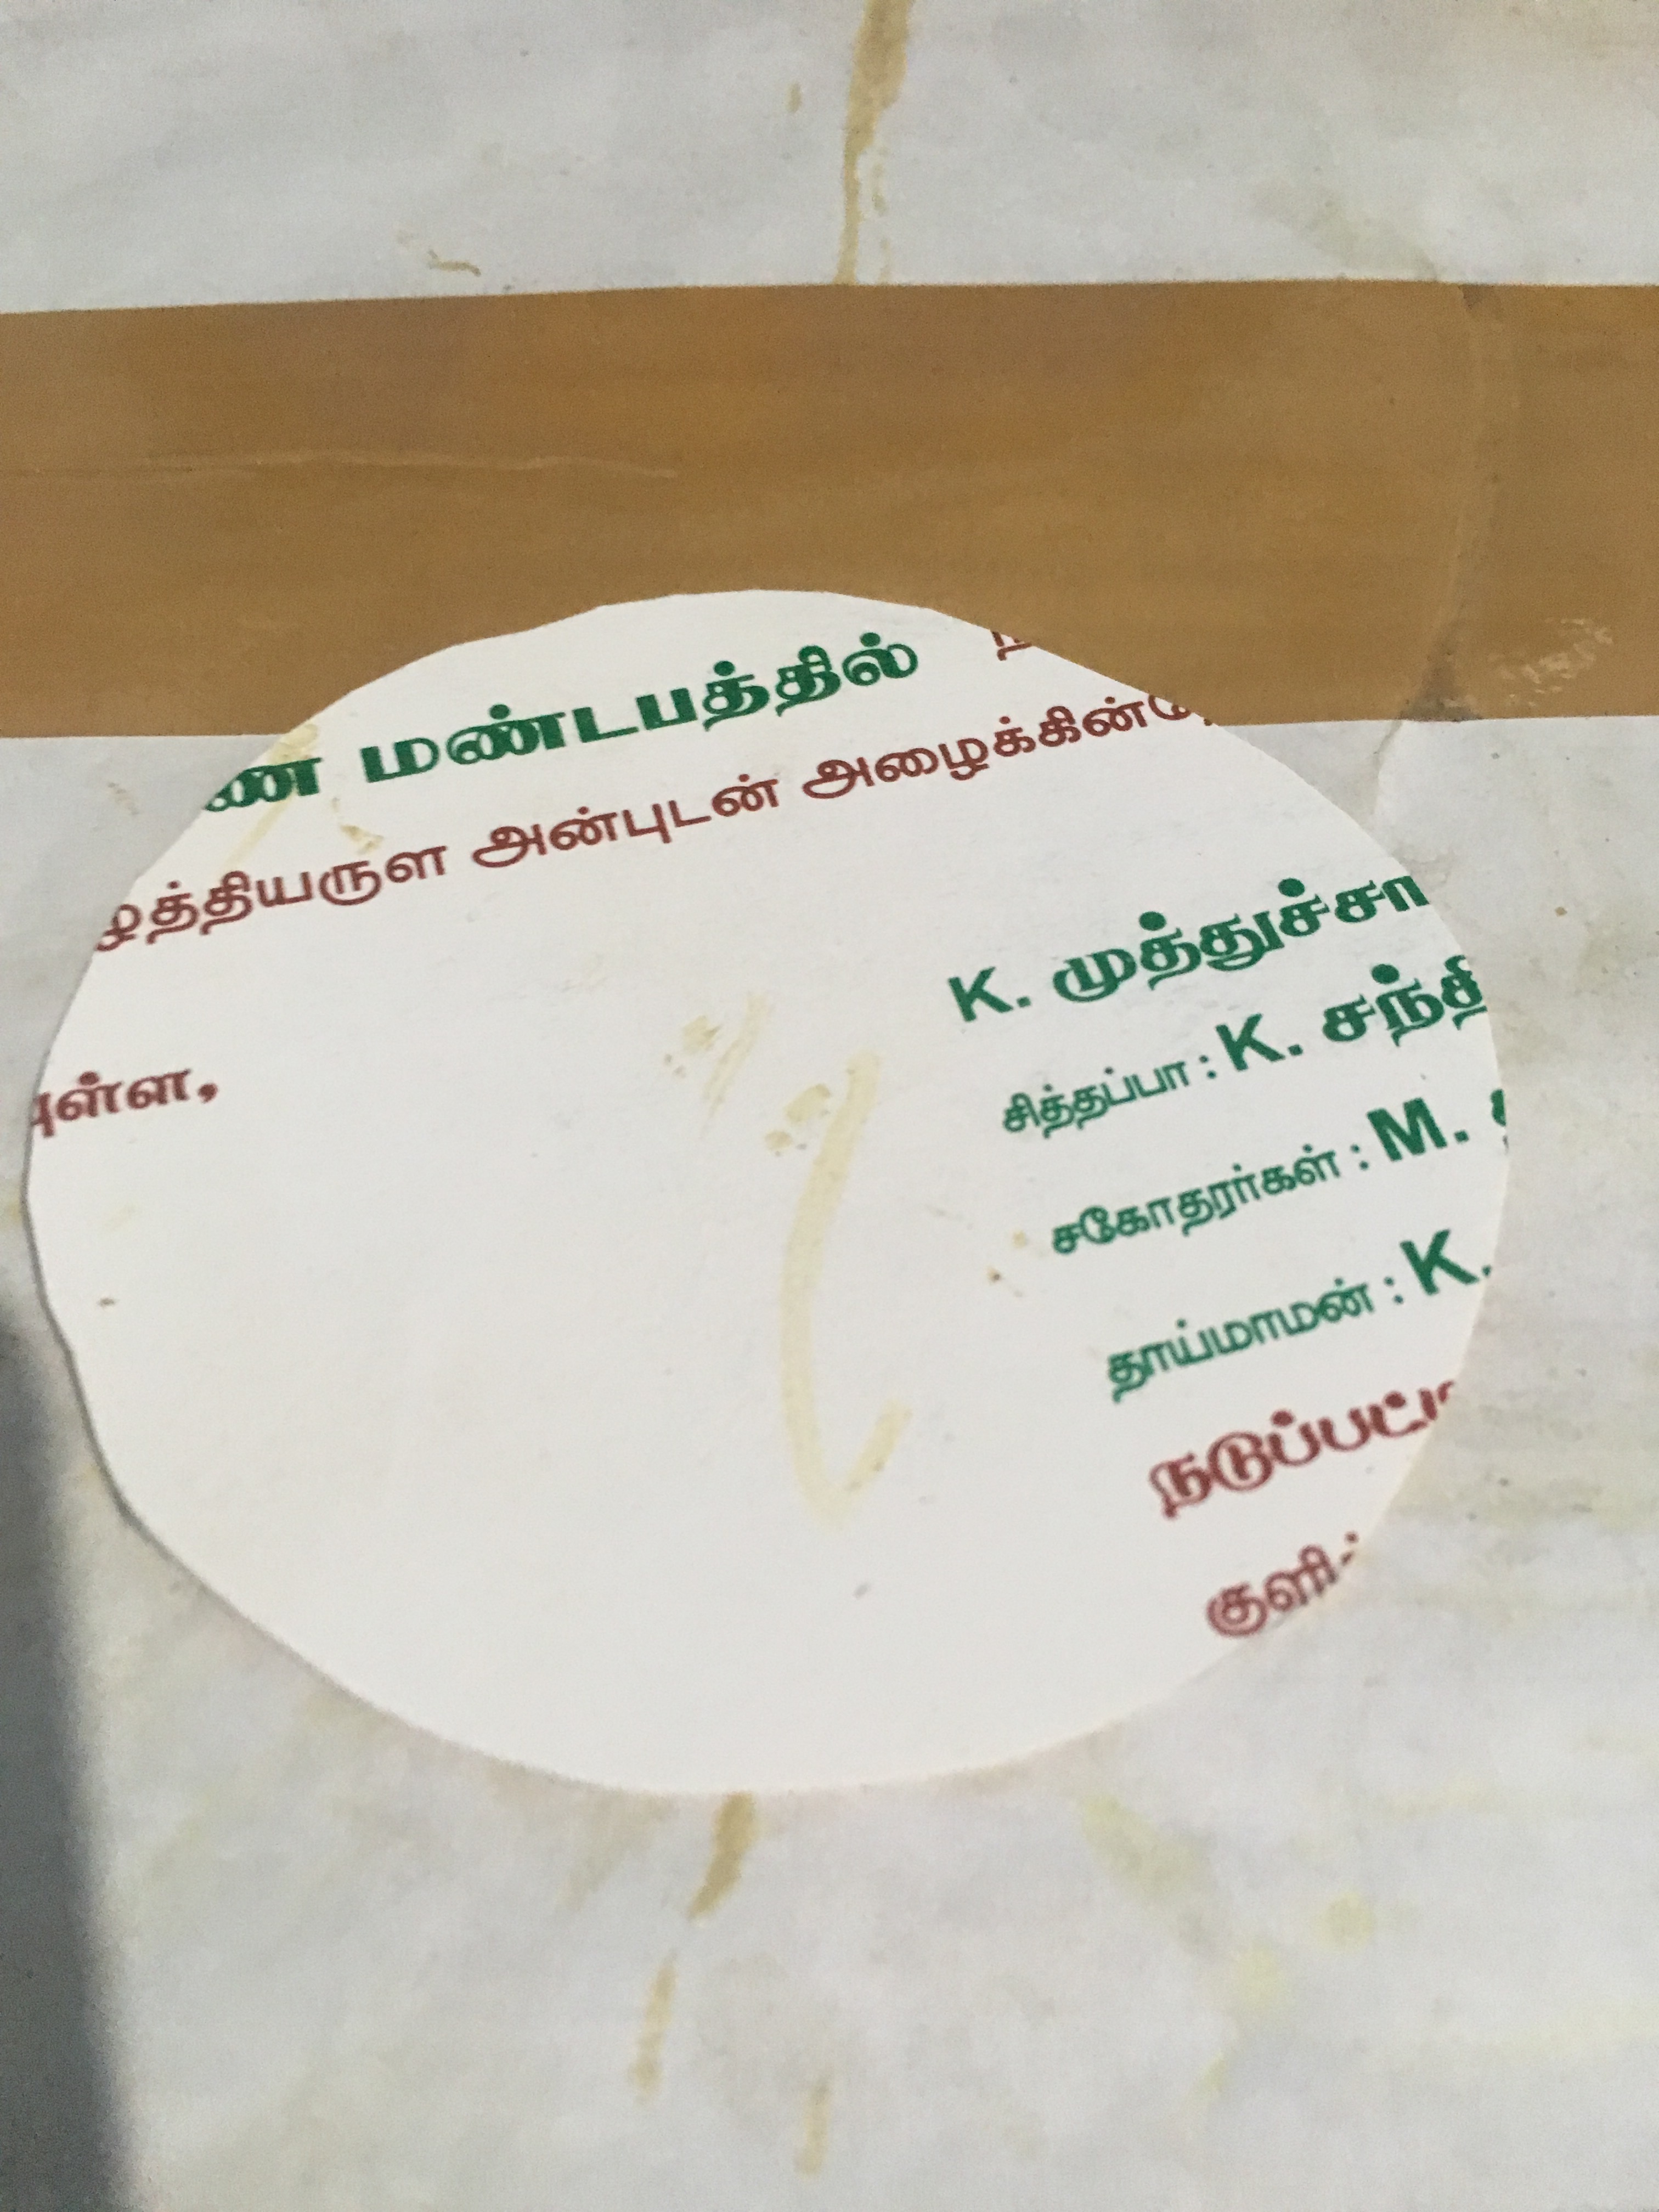 மண்டபத்தில்
அன்புடன் அழைக்கின்
K. முத்துச்சா
சித்தப்பா : K. சந்தி
சகோதரர்கள் : M.
தாய்மாமன் : K.
நடுப்பட்
குளி